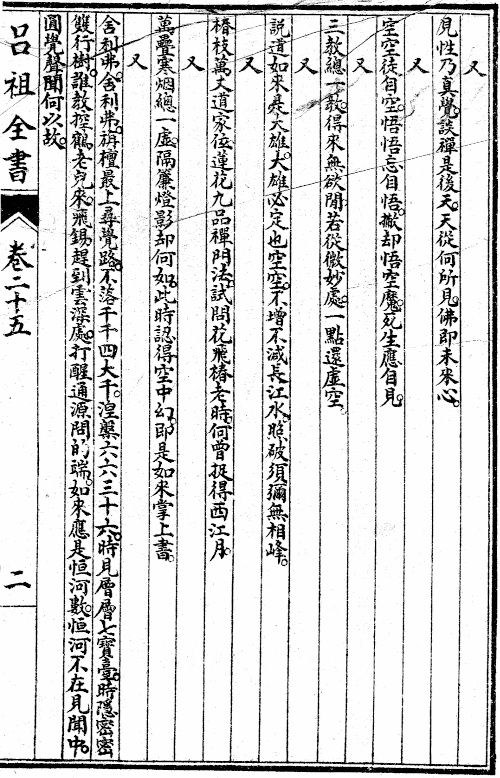 又
見性乃真覺談禪是後天。天從何所見。佛即未來心。
又
空空徒自空。悟悟忘自悟。撇却悟空魔。死生應自見。
又
三教總一教。得來無欲閒。若從微妙處。一點還虛空。
又
説道如來是大雄。大雄必定也空空。不增不減長江水。照破須彌無相峰。
又
椿枝萬丈道家伝。蓮花九品禪門法。試問花飛椿老時。何曾捉得西江月。
又
萬疊寒烟總一虛。隔簾燈影却何如。此時認得空中幻。即是如來掌上書。
又
舍利弗。舍利弗。旃檀最上尋覺路。不落千千四大千。涅槃六六三十六。時見層層七寶臺。時隱密密
雙行樹。誰敎探鶴老兒來。飛錫趕到雲深處。打醒通源問的端。如來應是恒河數。恒河不在見聞中。
圓覺聲聞何以故。
呂祖全書
卷二十五
二